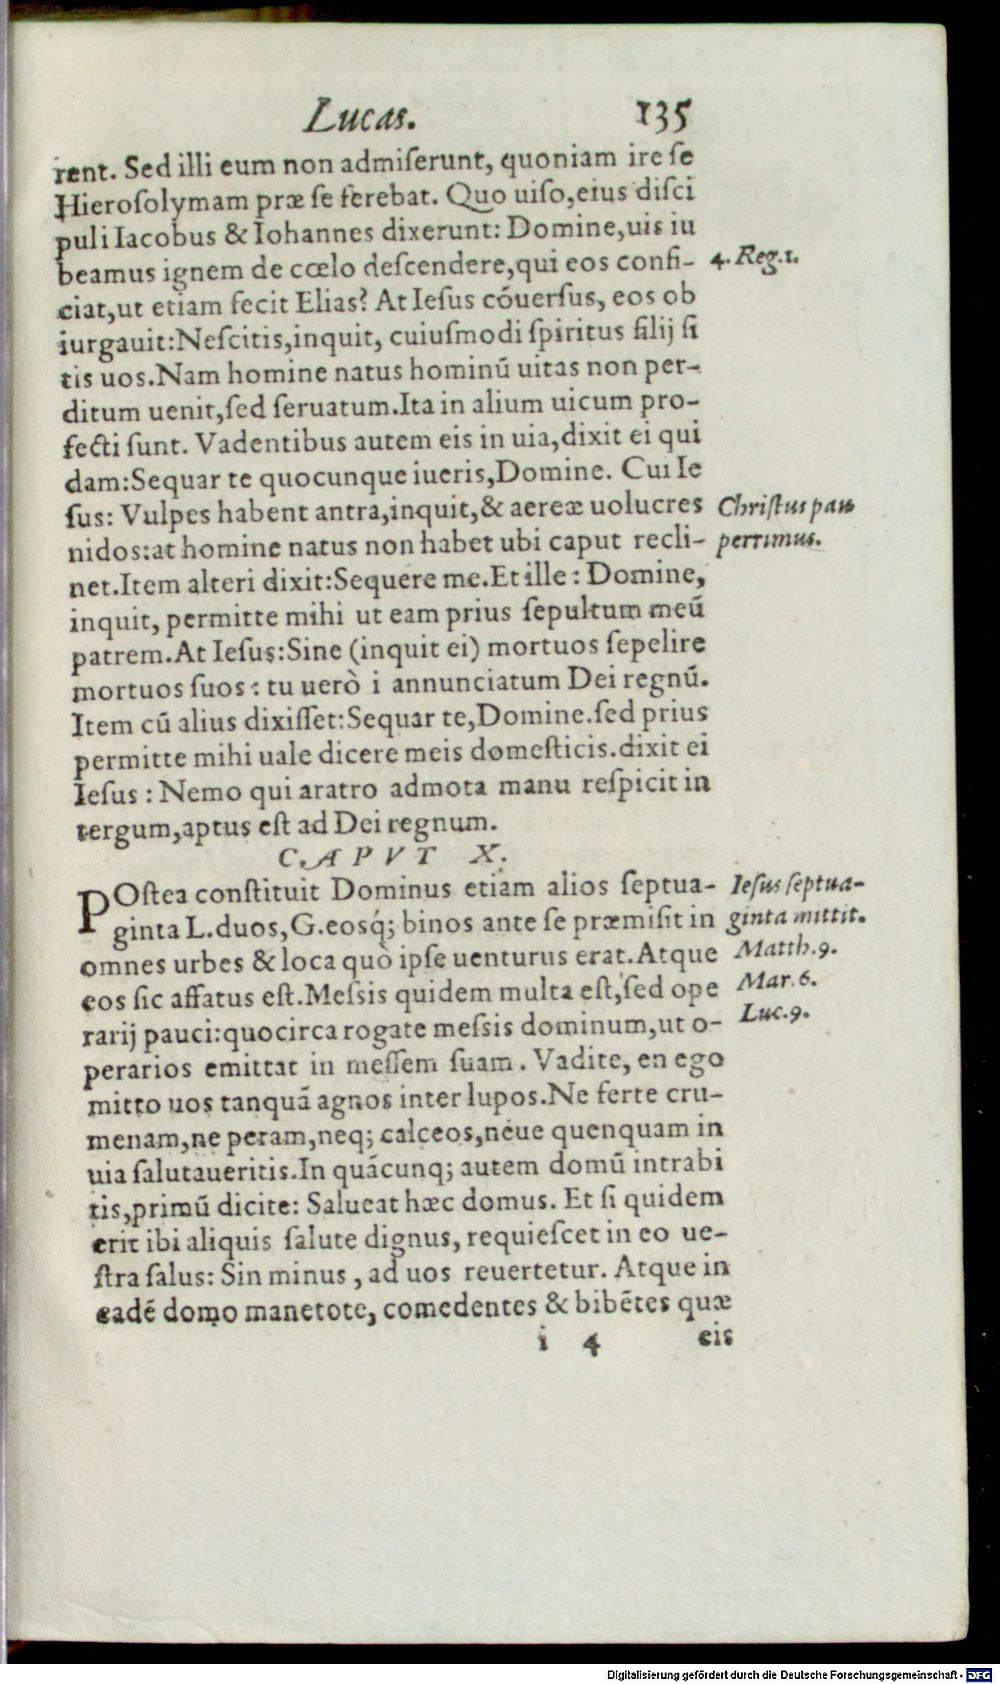 Lucas. 135
rent. Sed illi eum non admiſerunt, quoniam ire ſe
Hieroſolymam præ ſe ferebat. Quo uiſo, eius diſci
puli Iacobus & Iohannes dixerunt: Domine, uis iu
beamus ignem de cœlo deſcendere, qui eos confi-
4. Reg. 1.
ciat, ut etiam fecit Elias? At Ieſus cóuerſus, eos ob
iurgauit: Neſcitis, inquit, cuiuſmodi ſpiritus filij ſi
tis uos. Nam homine natus hominũ uitas non per-
ditum uenit, ſed ſeruatum. Ita in alium uicum pro-
fecti ſunt. Vadentibus autem eis in uia, dixit ei qui
dam: Sequar te quocunque iueris, Domine. Cui Ie
ſus: Vulpes habent antra, inquit, & aereæ uolucres
Chriſtus pau
nidos: at homine natus non habet ubi caput recli-
perrimus.
net. Item alteri dixit: Sequere me. Et ille: Domine,
inquit, permitte mihi ut eam prius ſepultum meũ
patrem. At Ieſus: Sine (inquit ei) mortuos ſepelire
mortuos ſuos: tu uerò i annunciatum Dei regnũ.
Item cũ alius dixiſſet: Sequar te, Domine. ſed prius
permitte mihi uale dicere meis domeſticis. dixit ei
Ieſus: Nemo qui aratro admota manu reſpicit in
tergum, aptus eſt ad Dei regnum.
CAPVT X.
POſtea conſtituit Dominus etiam alios ſeptua-
Ieſus ſeptua-
ginta L. duos, G. eosq́; binos ante ſe præmiſit in
ginta mittit.
omnes urbes & loca quò ipſe uenturus erat. Atque
Matth. 9.
eos ſic affatus eſt. Meſsis quidem multa eſt, ſed ope
Mar. 6.
rarij pauci: quocirca rogate meſsis dominum, ut o-
Luc. 9.
perarios emittat in meſſem ſuam. Vadite, en ego
mitto uos tanquã agnos inter lupos. Ne ferte cru-
menam, ne peram, neq; calceos, néue quenquam in
uia ſalutaueritis. In quãcunq; autem domũ intrabi
tis, primũ dicite: Salueat hæc domus. Et ſi quidem
erit ibi aliquis ſalute dignus, requieſcet in eo ue-
ſtra ſalus: Sin minus, ad uos reuertetur. Atque in
eadẽ domo manetote, comedentes & bibẽtes quæ
i 4 eis
Digitalisierung gefördert durch die Deutsche Forschungsgemeinschaft - DFG